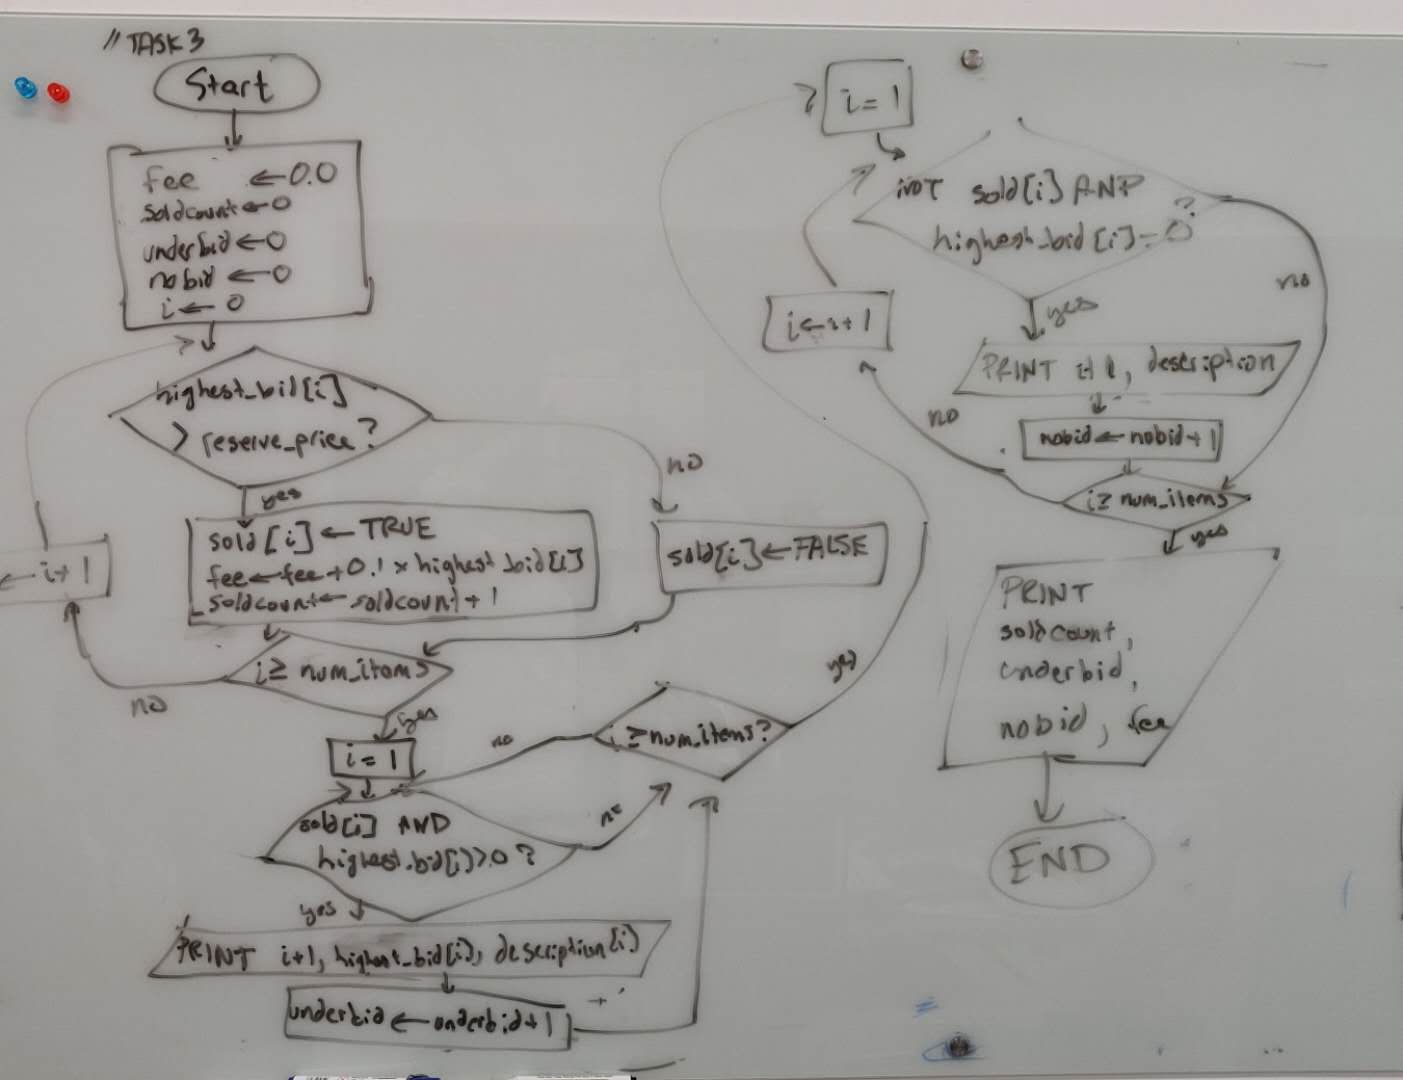 // TASK 3
Start
fee ← 0.0
soldcount ← 0
underbid ← 0
nobid ← 0
i ← 0
highest_bid[i]
> reserve_price?
yes
no
sold[i] ← TRUE
fee ← fee + 0.1 × highest_bid[i]
soldcount ← soldcount + 1
sold[i] ← FALSE
← i+1
i ≥ num_items
no
yes
i = 1
sold[i] AND
highest_bid[i] > 0 ?
no
yes
PRINT i+1, highest_bid[i], description[i]
underbid ← underbid + 1
i ≥ num_items?
no
yes
i = 1
NOT sold[i] AND
highest_bid[i] = 0 ?
no
yes
PRINT i+1, description
nobid ← nobid + 1
i ≥ num_items
no
i ← i + 1
yes
PRINT
soldcount,
underbid,
nobid, fee
END